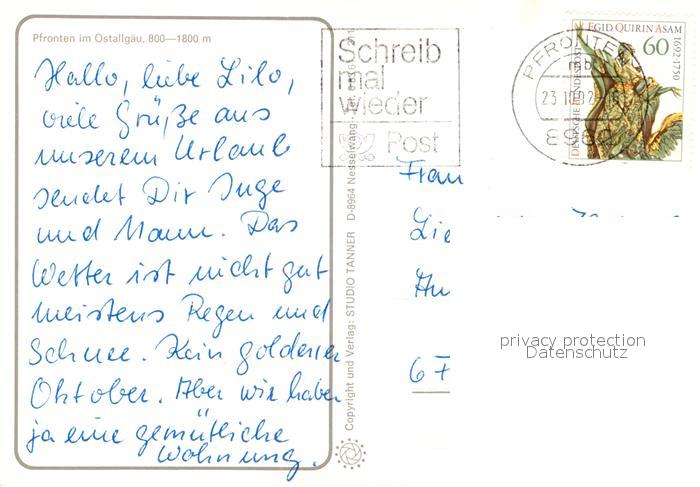 Pfronten im Ostallgäu, 800—1800 m
Hallo, liebe Lilo,
viele Grüße aus
unserem Urlaub
sendet Dir Inge
und Mann. Das
Wetter ist nicht gut
meistens Regen und
Schnee. Kein goldener
Oktober. Aber wir haben
ja eine gemütliche
Wohnung.
Copyright und Verlag: STUDIO TANNER D-8964 Nesselwang
Schreib
mal
wieder
Post
PFRONTEN
mb
23.10.92
8962
EGID QUIRIN ASAM
1692-1750
60
DEUTSCHE BUNDESPOST
Frau
Lie
67
privacy protection
Datenschutz